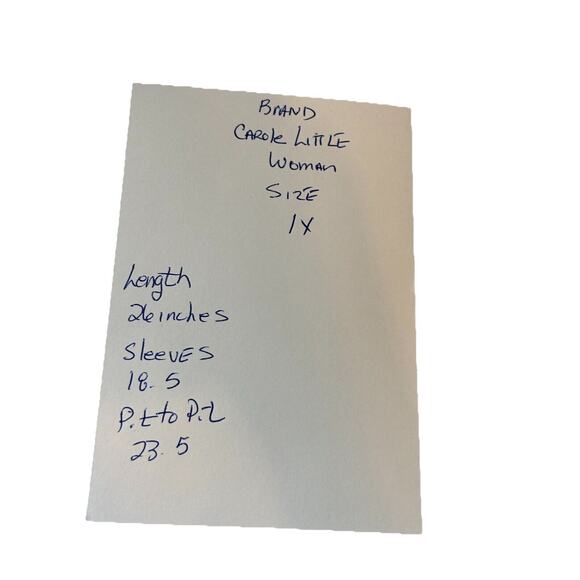 BRAND
CAROLE LITTLE
WOMAN
SIZE
1X
Length
26 inches
SleeVES
18.5
Pit to Pit
23.5